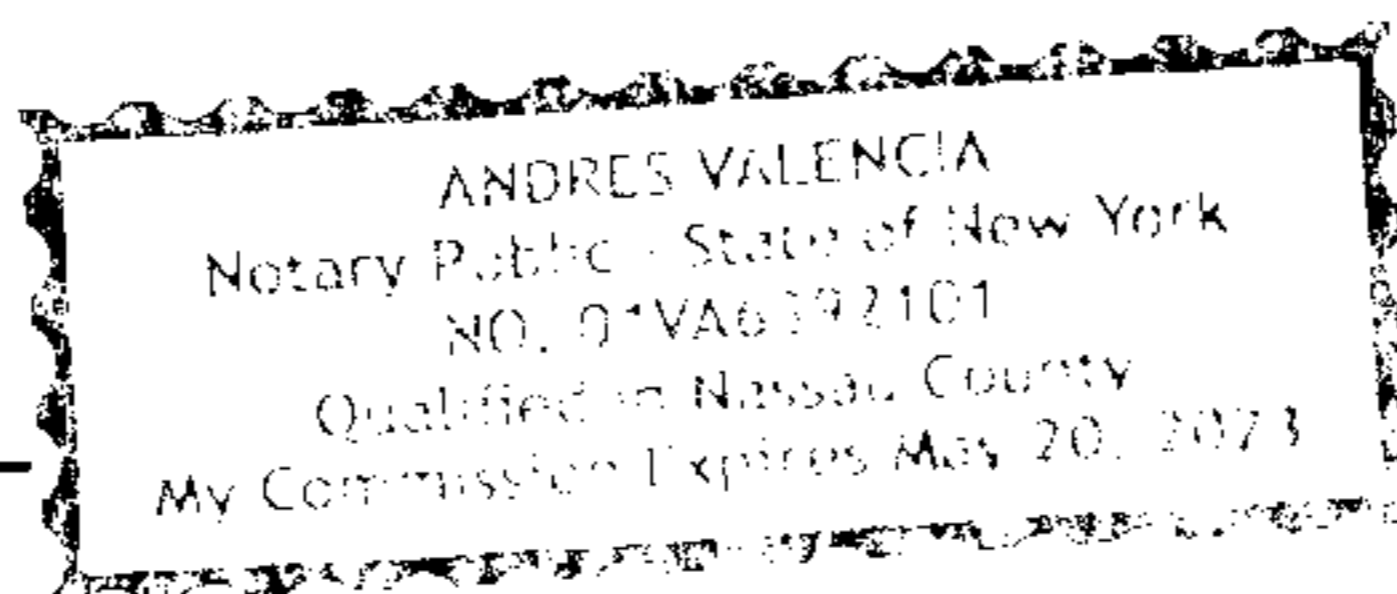 ANDRES VALENCIA
Notary Public - State of New York
NO. 01VA6392101
Qualified in Nassau County
My Commission Expires May 20, 2023